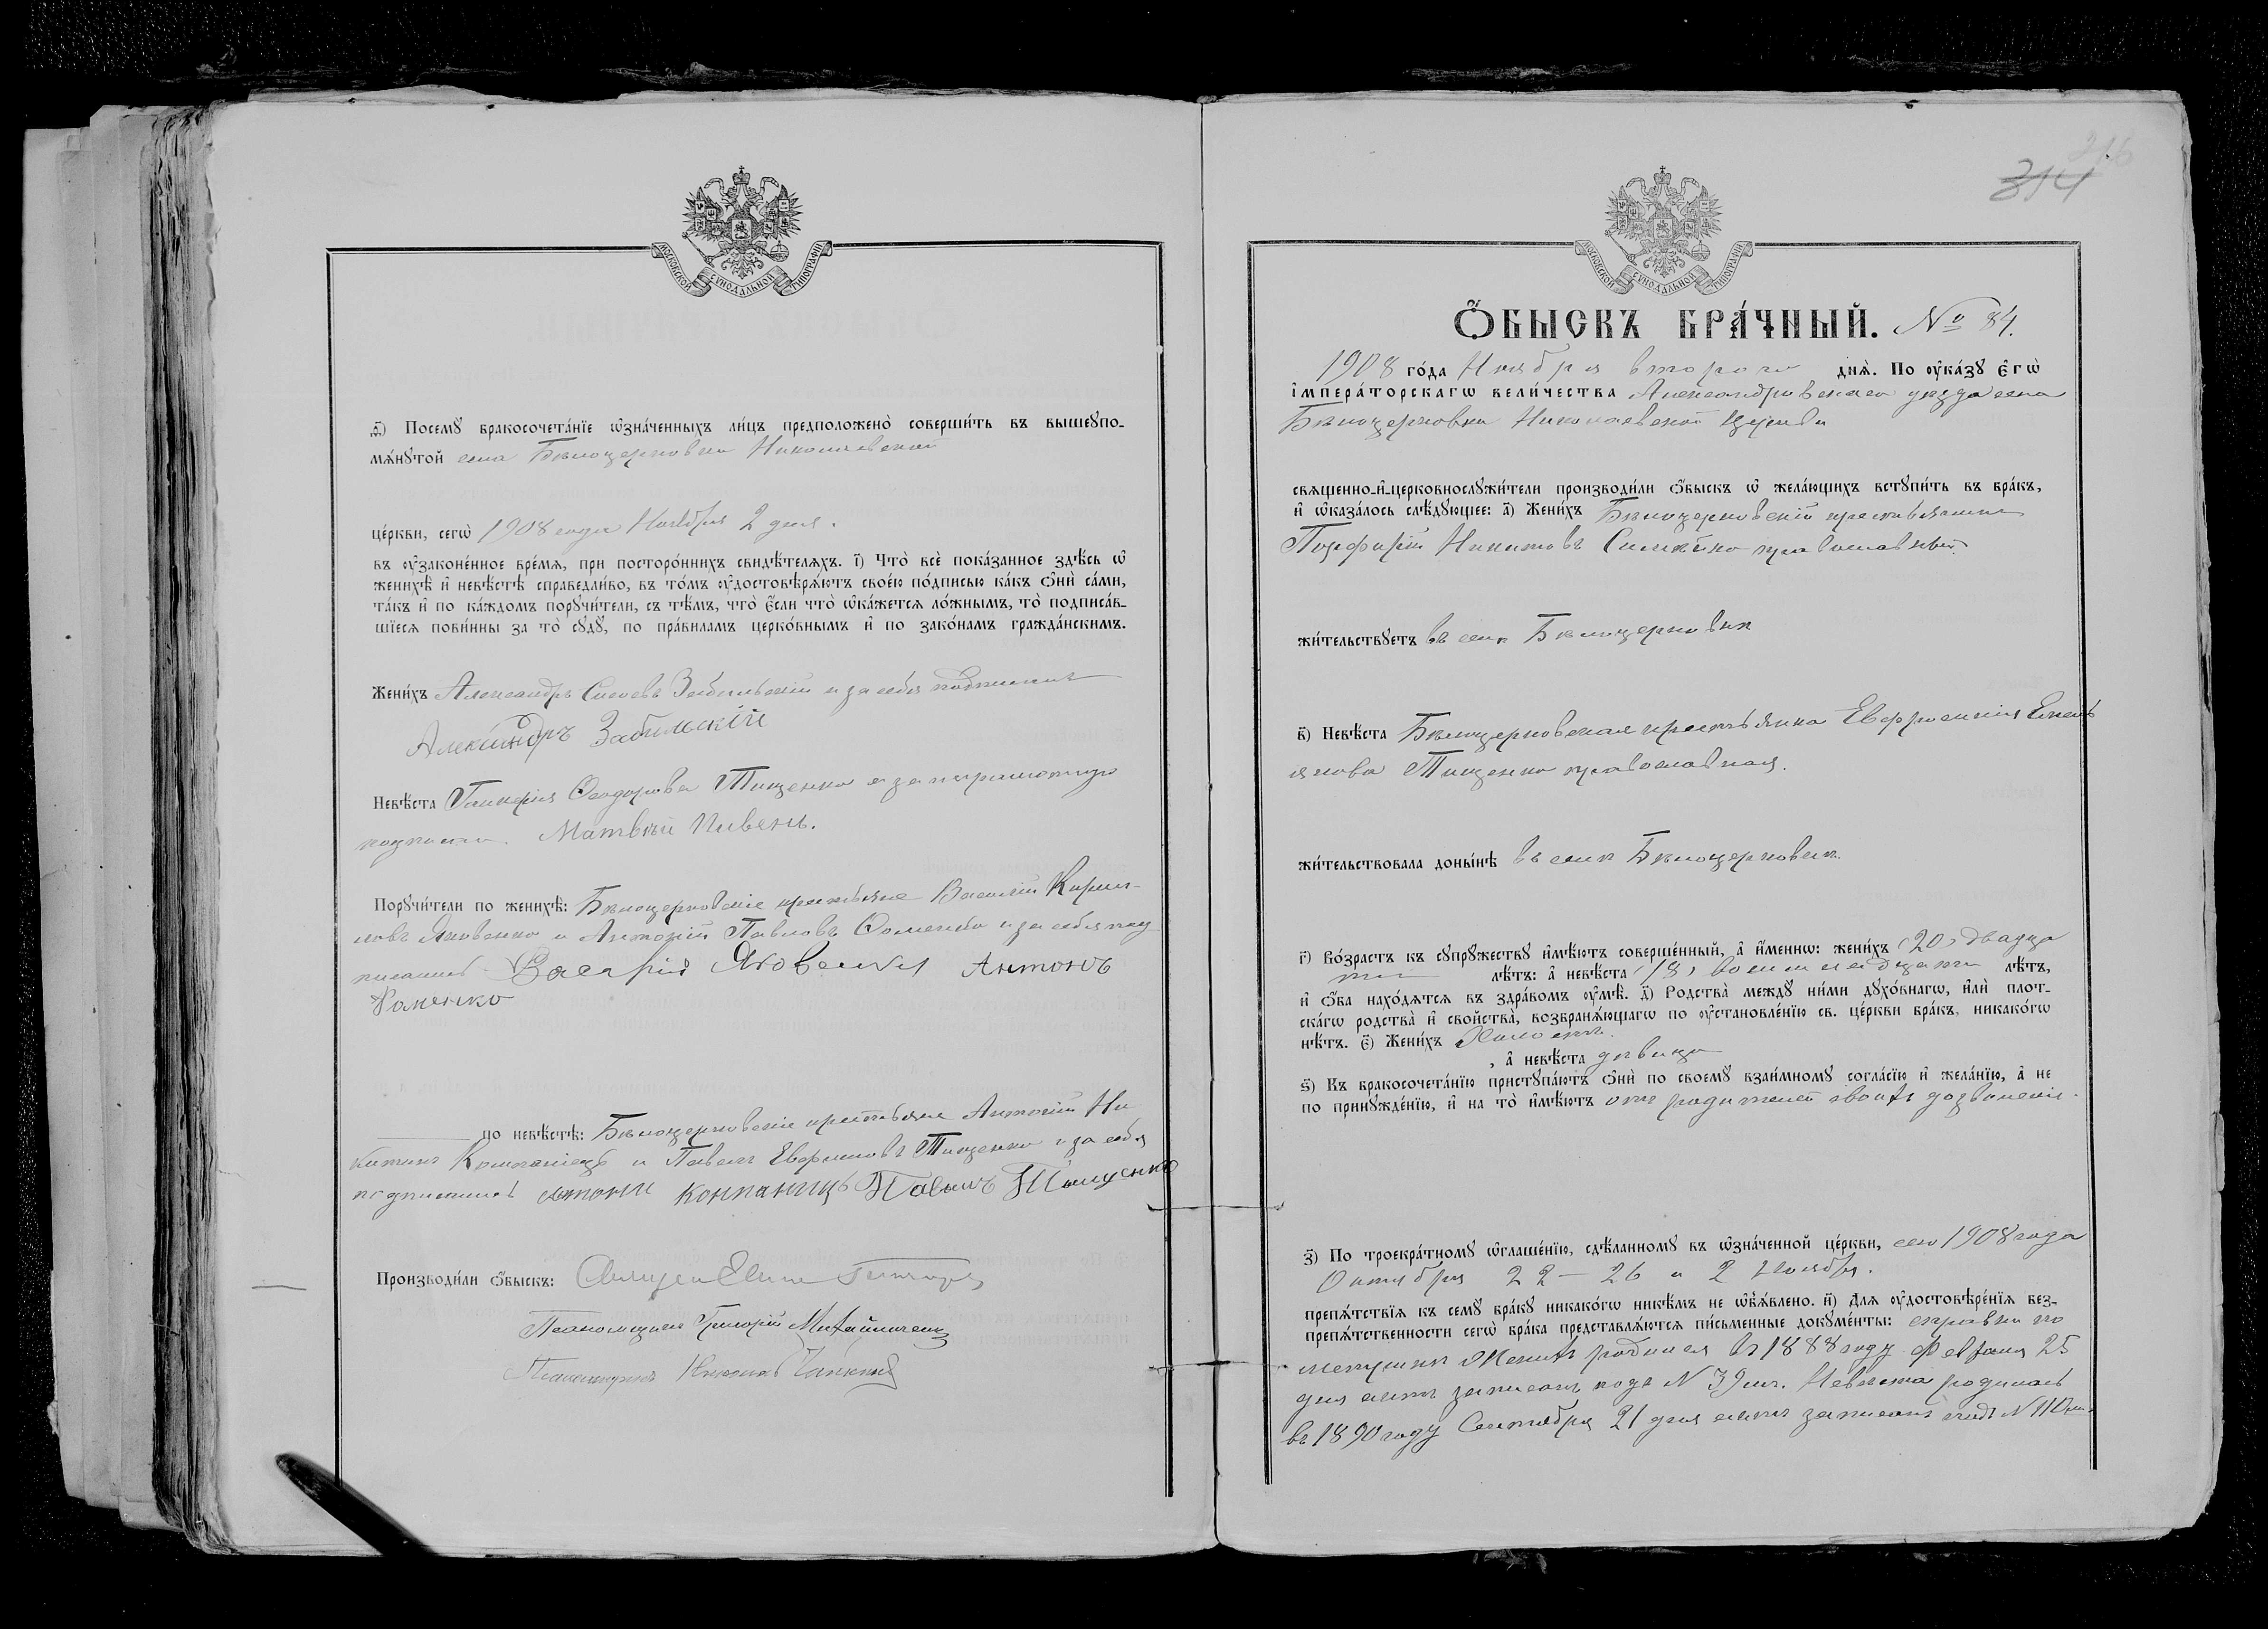 МОСКОВСКОЙ СѴНОДАЛЬНОЙ ТИПОГРАФІИ
ѳ҃) Посемꙋ̀ бракосочета́нїе ѡ҆зна́ченныхъ ли́цъ предположено̀ соверши́ть въ вышеꙋпо-
мѧ́нꙋтой села Бѣлоцерковки Николаевской
це́ркви, сегѡ̀ 1908 года Ноября 2 дня.
въ ᲂу҆зако́ненное вре́мѧ, при посторо́ннихъ свидѣ́телѧхъ. і҃) Что̀ всѐ пока́занное здѣ́сь ѡ҆
женихѣ̀ и҆ невѣ́стѣ справедли́во, въ то́мъ ᲂу҆достовѣрѧ́ютъ свое́ю по́дписью ка́къ ѻ҆нѝ са́ми,
та́къ и҆ по ка́ждомъ порꙋчи́тели, съ тѣ́мъ, что̀ є҆́сли что̀ ѡ҆ка́жетсѧ ло́жнымъ, то̀ подписа́в-
шїесѧ пови́нны за то̀ сꙋдꙋ̀, по пра́виламъ церко́внымъ и҆ по зако́намъ гражда́нскимъ.
Жени́хъ Александръ Забильскій и за себя подписался
Александръ Забильскій
Невѣ́ста Гликерія Ѳеодорова Тищенко а за неграмотную
подписался Матвѣй Пивень.
Порꙋчи́тели по женихѣ̀: Бѣлоцерковскіе крестьяне Василій Кирил-
ловъ Яковенко и Антоній Павловъ Ѳоменко и за себя под
писались Яковенко Антонъ
Фоменко
по невѣ́стѣ: Бѣлоцерковскіе крестьяне Антоній Ни
китинъ Компаніецъ и Павелъ Тищенко и за себя
подписались Антоній Компаниць Павелъ Тищенко
Производи́ли ѻ҆́быскъ: Священ
Псаломщикъ Григорій Михайличенко
Псаломщикъ
314
МОСКОВСКОЙ СѴНОДАЛЬНОЙ ТИПОГРАФІИ
Ѻ҆́БЫСКЪ БРА́ЧНЫЙ. № 84.
1908 го́да Ноября второго днѧ̀. По ᲂу҆ка́зꙋ є҆гѡ̀
і҆мпера́торскагѡ вели́чества Александровскаго уѣзда села
Бѣлоцерковки Николаевской церкви
свѧщенно-и҆-церковнослꙋжи́тели производи́ли ѻ҆́быскъ ѡ҆ жела́ющихъ встꙋпи́ть въ бра́къ,
и҆ ѡ҆каза́лось слѣ́дꙋющее: а҃) Жени́хъ Бѣлоцерковскій крестьянинъ
Порфирій Никитовъ православный
жи́тельствꙋетъ въ селѣ Бѣлоцерковкѣ
в҃) Невѣ́ста Бѣлоцерковская крестьянка Евфросинія Емель
янова Тищенко православная.
жи́тельствовала доны́нѣ въ селѣ Бѣлоцерковкѣ.
г҃) Во́зрастъ къ сꙋпрꙋ́жествꙋ и҆мѣ́ютъ соверше́нный, а҆ и҆́меннѡ: жени́хъ (20) двадца
ти лѣ́тъ: а҆ невѣ́ста (18) восемнадцати лѣ́тъ,
и҆ ѻ҆́ба нахо́дѧтсѧ въ здра́вомъ ᲂу҆мѣ̀. д҃) Родства̀ междꙋ̀ ни́ми дꙋхо́внагѡ, и҆лѝ плот-
ска́гѡ родства̀ и҆ сво́йства̀, возбранѧ́ющагѡ по ᲂу҆становле́нїю св. це́ркви бра́къ, никако́гѡ
нѣ́тъ. є҃) Жени́хъ Холостъ.
, а҆ невѣ́ста дѣвица
ѕ҃) Къ бракосочета́нїю пристꙋпа́ютъ ѻ҆нѝ по своемꙋ̀ взаи́мномꙋ согла́сїю и҆ жела́нїю, а҆ не
по принꙋжде́нїю, и҆ на то̀ и҆мѣ́ютъ отъ родителей своихъ дозволеніе.
з҃) По троекра́тномꙋ ѡ҆глаше́нїю, сдѣ́ланномꙋ въ ѡ҆зна́ченной це́ркви, сего 1908 года
Октября 22 – 26 и 2 Ноября.
препѧ́тствїѧ къ семꙋ̀ бра́кꙋ никако́гѡ никѣ́мъ не ѡ҆б̾ѧ́влено. и҃) Длѧ ᲂу҆достовѣре́нїѧ без-
препѧ́тственности сегѡ̀ бра́ка представлѧ́ютсѧ пи́сьменные докꙋме́нты: справки по
метрикѣ Женихъ родился въ 1888 году Февраля 25
дня актъ записанъ подъ N 39 Невѣста родилась
въ 1890 году Сентября 21 дня актъ записанъ подъ N 110